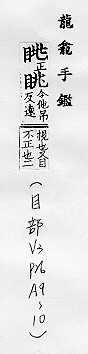 龍龕手鑑
正眺今他吊
反遠
視也又目
不正也二
(目部 V3 P16 A9~10)